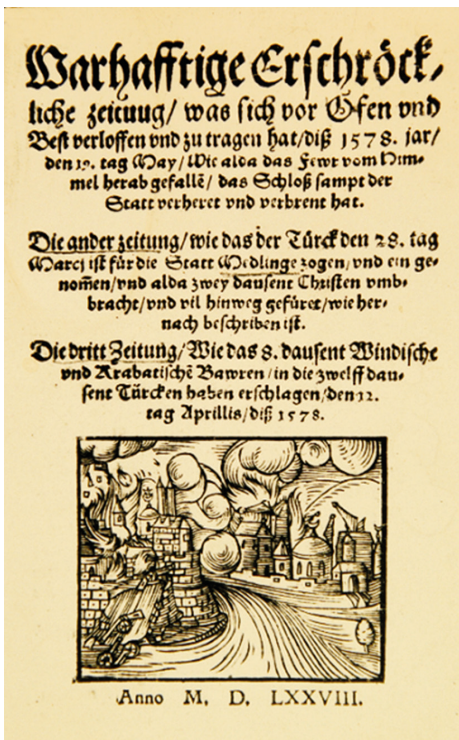 Warhafftige Erschröck-
liche zeituug/ was sich vor Ofen vnd
Best verloffen vnd zu tragen hat/diß 1578. jar/
den 19. tag May/ Wie alda das Fewr vom Him-
mel herab gefallẽ/ das Schloß sampt der
Statt verheret vnd verbrent hat.
Die ander zeitung/ wie das der Türck den 28. tag
Marcj ist für die Statt Medlinge zogen/ vnd ein ge-
nom̃en/ vnd alda zwey dausent Christen vmb-
bracht/ vnd vil hinweg gefüret/ wie her-
nach beschriben ist.
Die dritt Zeitung/ Wie das 8. dausent Windische
vnd Krabatischẽ Bawren/ in die zwelff dau-
sent Türcken haben erschlagen/ den 12.
tag Aprillis/ diß 1578.
Anno M. D. LXXVIII.